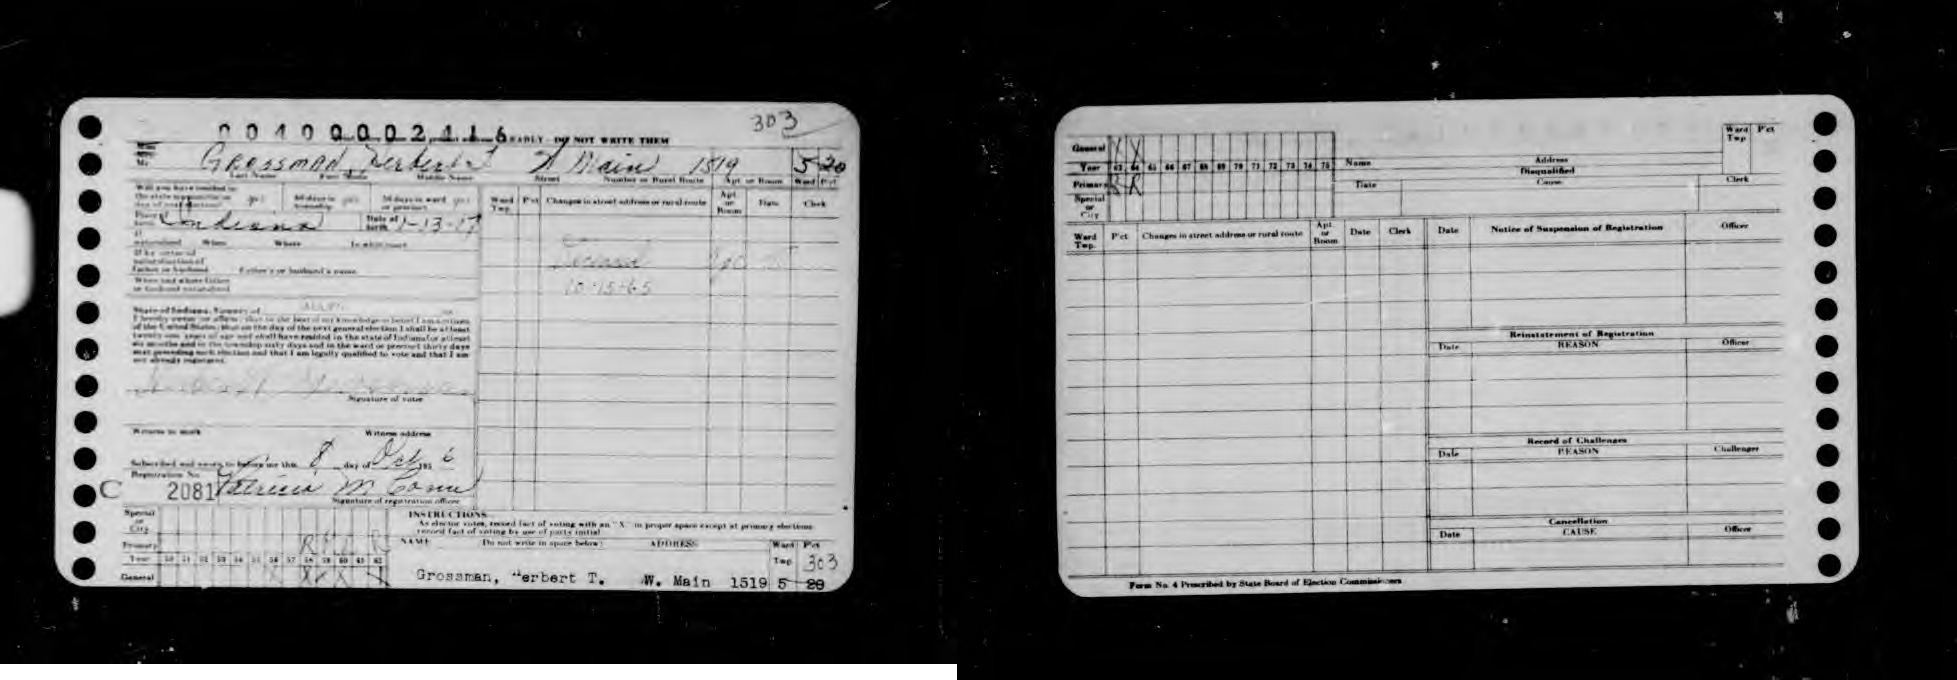 0040000 2116 EARLY - DO NOT WRITE THEM
303
Mr. Grossman, Herbert W Main 1519 5 20
Last Name First Name Middle Name Street Number or Rural Route Apt or Room Ward Pct
Will you have resided in
the state 6 months on yes 60 days in yes 30 days in ward yes
day of next election? township or precinct
Ward Twp. P'ct Changes in street address or rural route Apt. or Room Date Clerk
Place of birth Indiana Date of birth 1-13-17
If naturalized When Where In what court
If by virtue of
naturalization of
father or husband Father's or husband's name
When and where father
or husband naturalized
10-15-65
State of Indiana, County of
I hereby swear or affirm that to the best of my knowledge or belief I am a citizen
of the United States; that on the day of the next general election I shall be at least
twenty-one years of age and shall have resided in the state of Indiana for at least
six months and in the township sixty days and in the ward or precinct thirty days
next preceding such election and that I am legally qualified to vote and that I am
not already registered.
Signature of voter
Witness to mark Witness address
Subscribed and sworn to before me this 8 day of Oct 195 6
Registration No.
C 2081 Patricia M
Signature of registration officer
Special or City
Primary R R
Year 50 51 52 53 54 55 56 57 58 59 60 61 62
General X X X
INSTRUCTIONS
As elector votes, record fact of voting with an "X" in proper space except at primary elections
record fact of voting by use of party initial
NAME Do not write in space below: ADDRESS Ward Twp P'ct
303
Grossman, Herbert T. W. Main 1519 5 20
General X X
Year 63 64 65 66 67 68 69 70 71 72 73 74 75
Primary R R
Special or City
Name Address Ward Twp P'ct
Disqualified
Date Cause Clerk
Ward Twp. P'ct Changes in street address or rural route Apt or Room Date Clerk
Date Notice of Suspension of Registration Officer
Reinstatement of Registration
Date REASON Officer
Record of Challenges
Date REASON Challenger
Cancellation
Date CAUSE Officer
Form No. 4 Prescribed by State Board of Election Commissioners